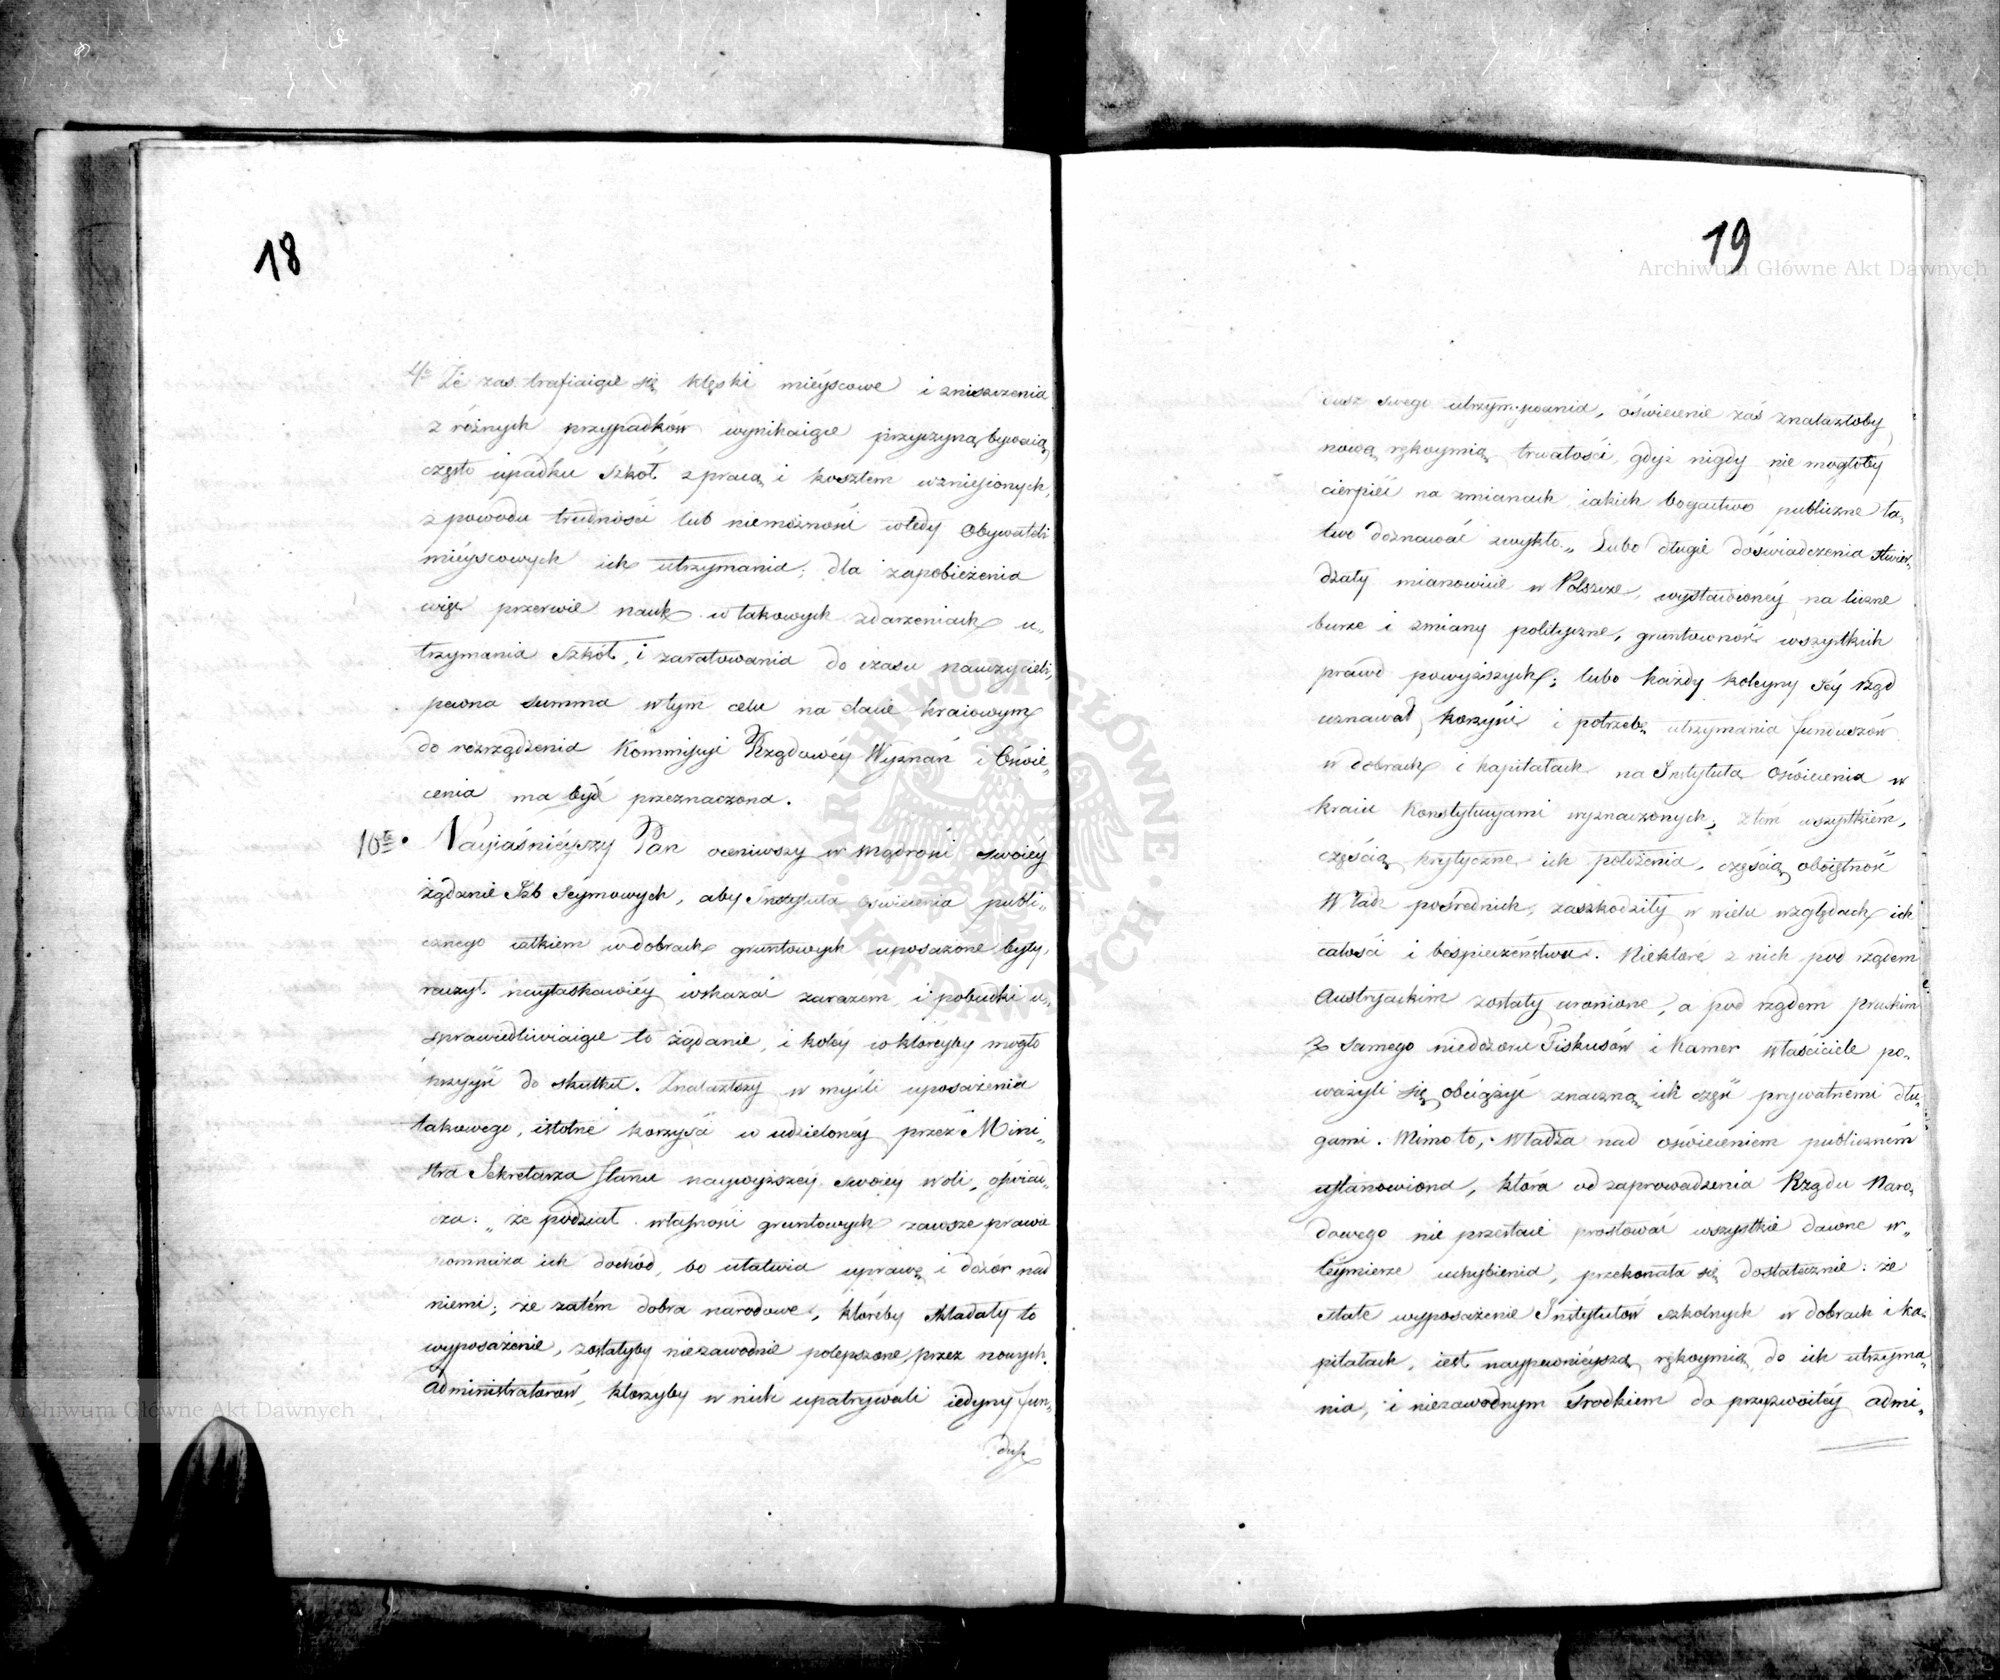 18
4e Że zaś trafiaiące się klęski mieyscowe i zniszczenia
z różnych przypadków wynikaiące przyczyną bywaią
często upadku szkół z pracą i kosztem wzniesionych,
z powodu trudności lub niemożności wtedy Obywateli
mieyscowych ich utrzymania; dla zapobieżenia
więc przerwie nauk w takowych zdarzeniach u„
trzymania szkół, i zaratowania do czasu nauczycieli,
pewna summa w tym celu na etacie kraiowym
do rozrządzenia Kommissyi Rządowéy Wyznań i Oświe„
cenia ma być przeznaczona.
10te. Nayiaśnieyszy Pan oceniwszy w mądrości swoiéy
żądanie Izb Seymowych, aby Instytuta oświecenia publi„
cznego całkiem w dobrach gruntowych uposażone były,
raczył nayłaskawiéy wskazać zarazem i pobudki u„
sprawiedliwiaiące to żądanie, i koléy w któréyby mogło
przyyść do skutku. Znalazłszy w myśli uposażenia
takowego, istotne korzyści w udzielonéy przez Mini„
stra Sekretarza Stanu naywyższéy swoiéy woli, oświad„
cza: „że podział własności gruntowych zawsze prawie
pomnaża ich dochód, bo ułatwia uprawę i dozór nad
niemi; że zatém dobra narodowe, któreby składały to
wyposażenie, zostałyby niezawodnie polepszone przez nowych
administratorów, którzyby w nich upatrywali iedyny fun„
dusz
19
dusz swego utrzymywania, oświecenie zaś znalazłoby
nową rękoymią trwałości, gdyż nigdy nie mogłoby
cierpieć na zmianach iakich bogactwo publiczne ła„
two doznawać zwykło.„ Lubo długie doświadczenia stwier„
dzały mianowicie w Polszcze, wystawionéy na liczne
burze i zmiany polityczne, gruntowność wszystkich
prawd powyższych; lubo każdy koleyny Jéy rząd
uznawał korzyści i potrzebę utrzymania funduszów
w dobrach i kapitałach na Instytuta oświecenia w
kraiu Konstytucyami wyznaczonych; z tem wszystkiém,
częścią krytyczne ich położenia, częścią oboiętność
Władz pośrednich, zaszkodziły w wielu względach ich
całości i bespieczeństwu. Niektóre z nich pod rządem
Austryackim zostały uronione, a pod rządem pruskim
za samego niedozoru Fiskusów i Kamer właściciele po„
ważyli się obciążyć znaczną ich część prywatnemi dłu„
gami. Mimo to, Władza nad oświeceniem publiczném
ustanowiona, która od zaprowadzenia Rządu Naro„
dowego nie przestaie prostować wszystkie dawne w„
téymierze uchybienia, przekonała się dostatecznie: że
stałe wyposażenie Instytutów szkolnych w dobrach i ka„
pitałach, iest naypewnieyszą rękoymią do ich utrzyma„
nia, i niezawodnym środkiem do przyzwoitéy admi„
Archiwum Główne Akt Dawnych
Archiwum Główne Akt Dawnych
ARCHIWUM GŁÓWNE AKT DAWNYCH